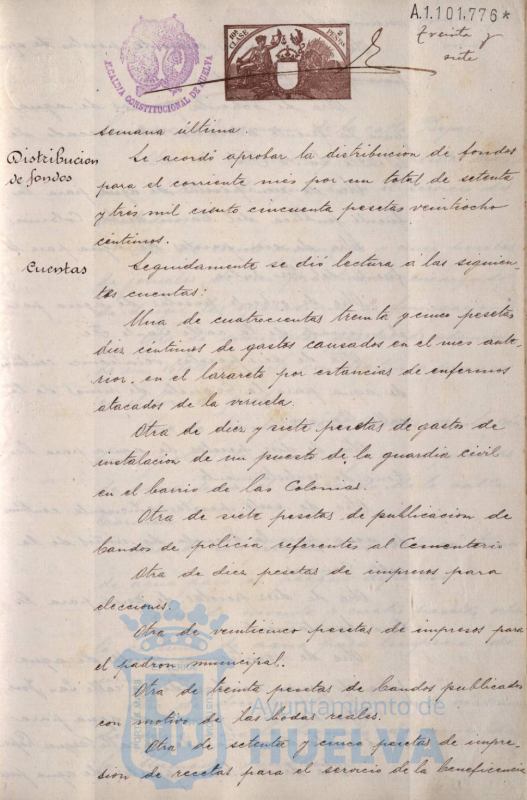 A.1.101,776*
Treinta y
siete
ALCALDIA CONSTITUCIONAL DE HUELVA
10ª CLASE
2 PESETAS
semana última.
Distribucion
de fondos
Se acordó aprobar la distribucion de fondos
para el corriente mes por un total de setenta
y tres mil ciento cincuenta pesetas veintiocho
céntimos.
Cuentas
Seguidamente se dió lectura á las siguien-
tes cuentas:
Una de cuatrocientas treinta y cinco pesetas
diez céntimos de gastos causados en el mes ante-
rior en el lazareto por estancias de enfermos
atacados de la viruela.
Otra de diez y siete pesetas de gastos de
instalacion de un puesto de la guardia civil
en el barrio de las Colonias.
Otra de siete pesetas de publicacion de
bandos de policía referentes al Cementerio
Otra de diez pesetas de impresos para
elecciones.
Otra de veinticinco pesetas de impresos para
el padron municipal.
Otra de treinta pesetas de bandos publicados
con motivo de las bodas reales.
Otra de setenta y cinco pesetas de impre-
sion de recetas para el servicio de la beneficencia
Ayuntamiento de
HUELVA